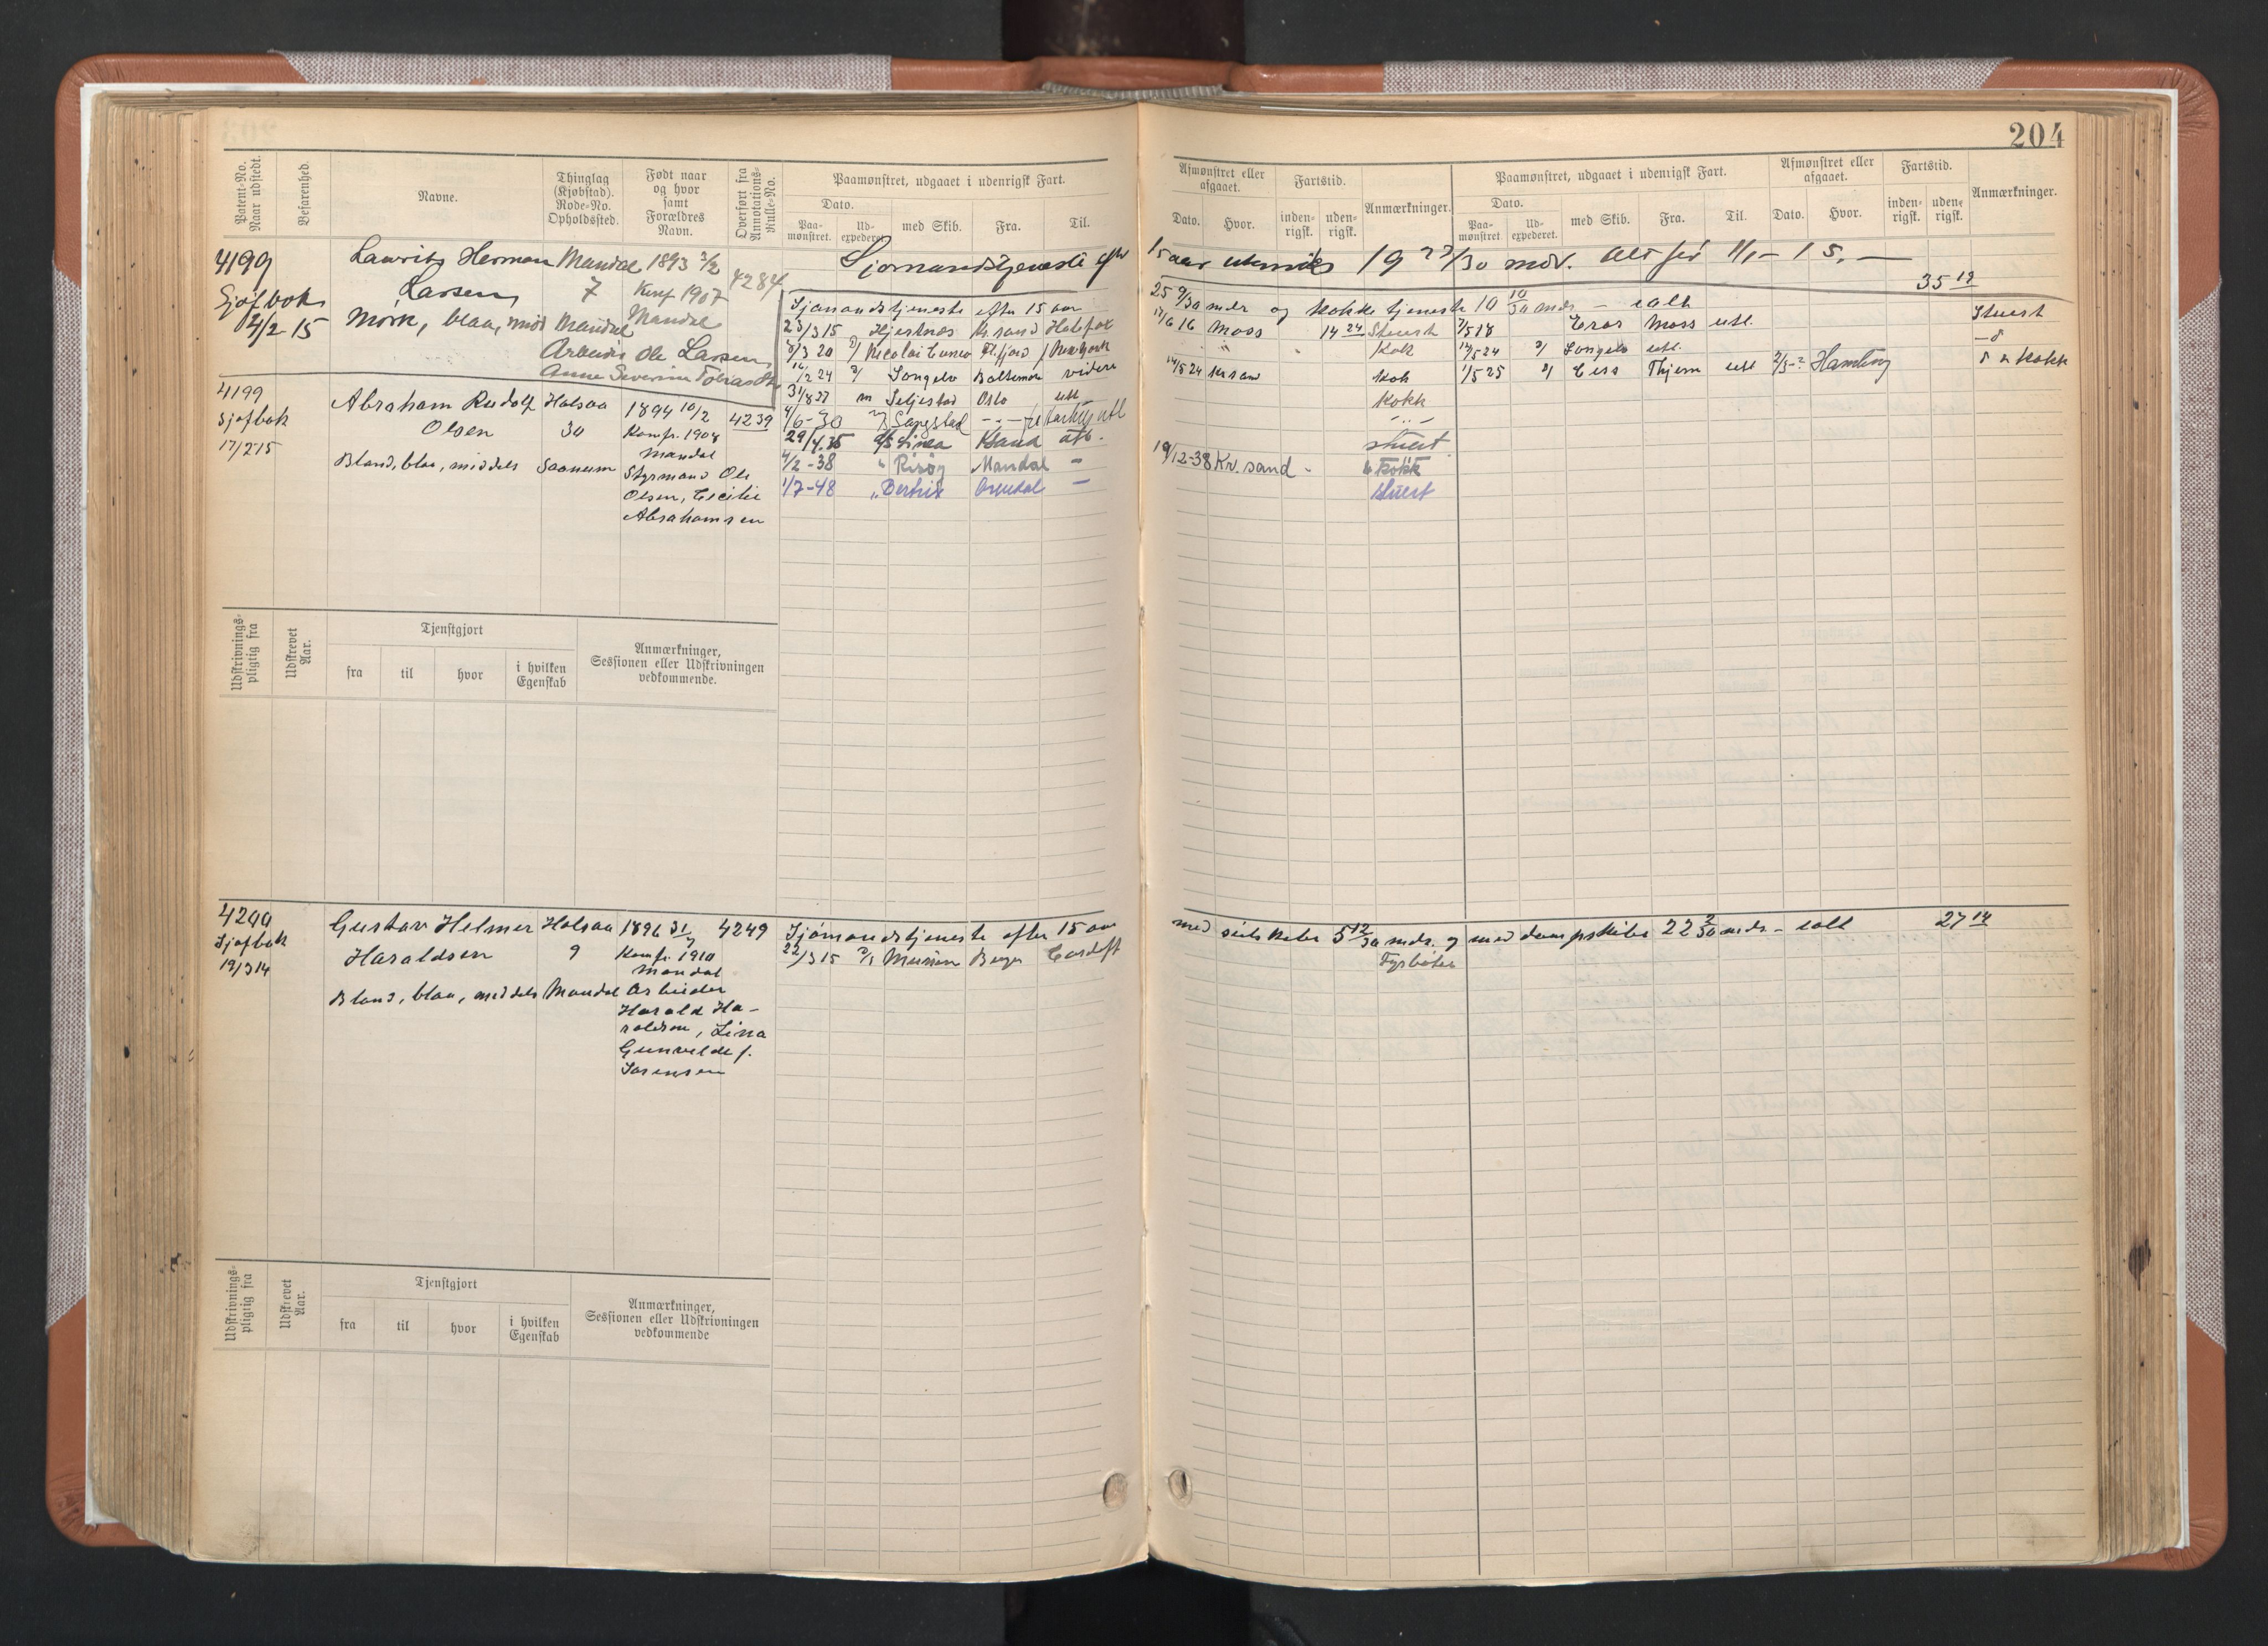 204
Patent-No. Naar udstedt.
Befarenhed.
Navne.
Thinglag (Kjøbstad). Rode-No. Opholdssted.
Født naar og hvor samt Forældres Navn.
Overført fra Annotations-Rulle-No.
Paamønstret, udgaaet i udenrigsk Fart.
Dato.
Paa-mønstret.
Ud-expederet.
med Skib.
Fra.
Til.
Afmønstret eller afgaaet.
Dato.
Hvor.
Fartstid.
inden-rigsk.
uden-rigsk.
Anmærkninger.
Paamønstret, udgaaet i udenrigsk Fart.
Dato.
Paa-mønstret
Ud-expederet.
med Skib.
Fra.
Til.
Afmønstret eller afgaaet.
Dato.
Hvor.
Fartstid.
inden-rigsk.
uden-rigsk.
Anmærkninger.
4199 Laurits Herman Mandal 1893 4284 Sjømandstjeneste efter 15 aar utenriks 19 23/30 mdr.
Sjøfbok Larsen, 7 Konf 1907
12/2-15 Mørk, blaa, mid Mandal Mandal
Arbeider Ole Larsen,
Anne Severine
4199 Abraham Rudolf Halsaa 1894 10/2 4239
Sjøfbok Olsen 30 Konfr. 1908
17/2 15 Mandal
Bland, blaa, middels Saanum Styrmand Ole
Olsen, Cecilie
Abrahamsen
Sjømandstjeneste efter 15 aar 25 9/30 mdr og kokke tjeneste 10 10/30 mdr - ialt 35 19
23/3 15 Hjestnæs Kr sand Halifax 17/6 16 Moss 14 24 Stuert 7/5 18 Eros Moss utl. Stuert
3/3 20 Nicolai Kok 12/5 24 Songelv utl.
16/2 24 Songelv Baltimore videre 14/5 24 Kr sand Kok 1/5 25 utl Hamburg Kokk
31/8 27 Seljestad Oslo utl Kokk
4/6-30 Sangstad
29/4.35 Kr sand utl. stuert
4/2-38 " Risøy Mandal - 19/12-38 Kr. sand - Kokk
1/7-48 Arendal - stuert
Udskrivnings-pligtig fra
Udskrevet Aar.
Tjenstgjort
fra
til
hvor
i hvilken Egenskab
Anmærkninger, Sessionen eller Udskrivningen vedkommende.
4200 Gustav Helmer Halsaa 1896 31/7 4249 Sjømandstjeneste efter 15 aar med seilskibe 5 12/30 mdr. og med dampskibe 22 2/30 mdr - ialt 27 14
Sjøfbok Haraldsen 9 Konfr. 1910 22/3 15 Bergen Cardiff Fyrbøter
19/3 14 Mandal
Bland, blaa, middels Mandal Arbeider
Harald Ha-
raldsen, Lina
Gunvelde f.
Sørensen
Udskrivnings-pligtig fra
Udskrevet Aar.
Tjenstgjort
fra
til
hvor
i hvilken Egenskab
Anmærkninger, Sessionen eller Udskrivningen vedkommende